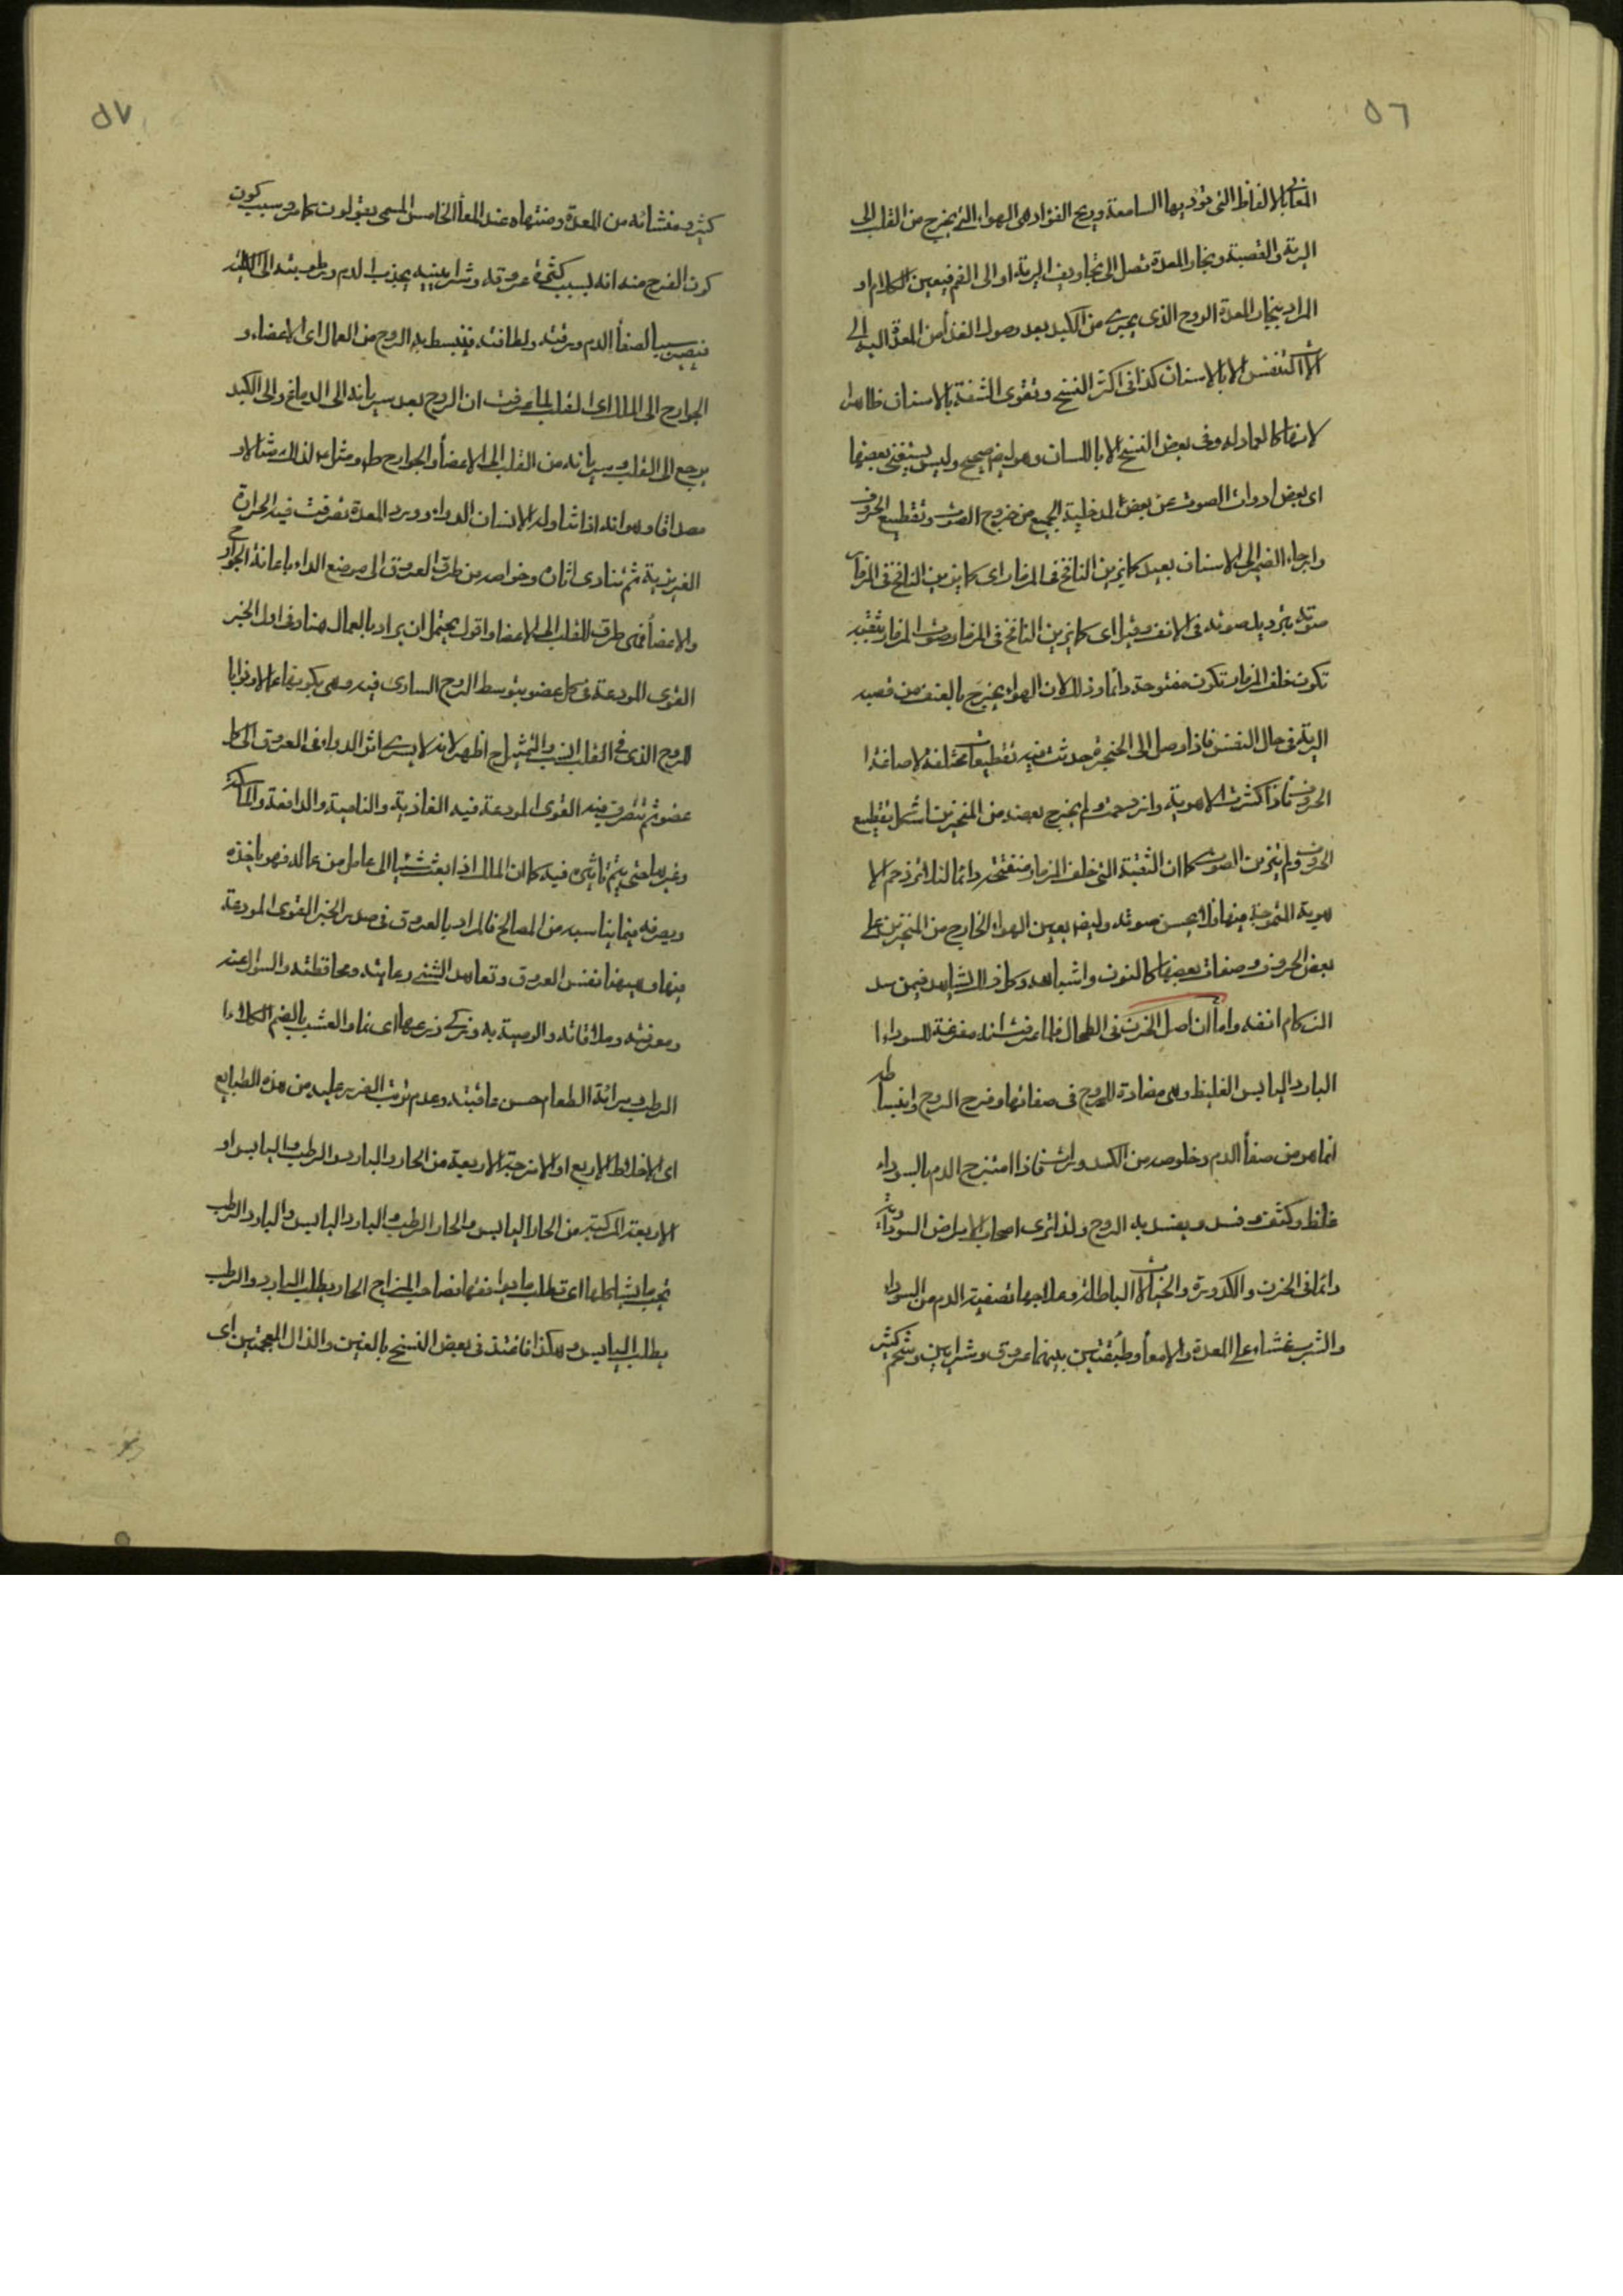 ٥٦
المعانی بالالفاظ التی تؤدیها السامعة وریح الفؤاد هی الهواء الذی یخرج من القلب الی
الریة والقصبة وبخار المعدة تصل الی تجاویف الریة او الی الفم فیعین الکلام او
المراد ببخار المعدة الروح الذی یجری من الکبد بعد وصول الغذأ من المعدة الیه الی
الا بالاسنان کذا فی اکثر النسخ وتقوی الشفة بالاسنان ظاهر
لانها کالعماد له وفی بعض النسخ الا باللسان وهو ایض صحیح ولیس یستغنی بعضها
ای بعض ادوات الصوت عن بعض لمدخلیة الجمیع من خروج الصوت وتقطیع الحروف
وارجاع الضمیر الی الاسنان بعید کما یزین النافخ فی المزمار ای کما یزین النافخ فی المزمار
صوته بتردید صوته فی الانف وقیل ای کما یزین النافخ فی المزمار صوت المزمار بثقبة
تکون خلف المزمار تکون مفتوحة دائما وذلک لان الهواء یخرج بالعنف من قصبة
الریة فی حال التنفس فاذا وصل الی الحنجرة حدثت فیه تقطیعات مختلفة لاصاغة ا
الحروف فاذا کثرت الاهویة وازدحمت ولم یخرج بعضه من المنخرین اشکل تقطیع
الحروف ولم یتزین الصوت کما ان الثقبة التی خلف المزمار منفتحة دائما لئلا تزدحم الا
هویة المتموجة فیها فلا یحسن صوته وایض یعین الهواء الخارج من المنخرین علی
بعض الحروف وصفات بعضها کالنون واشباهه وکل ذلک یشاهد فیمن سد
الزکام انفه واما ان اصل الحزن فی الطحال فلما عرفت انه مفرغة للسوداء ا
البارد الیابس الغلیظ وهی مضادة للروح فی صفاتها وفرح الروح وانبساطه
انما هو من صفأ الدم وخلوصه من الکدورات فاذا امتزج الدم بالسوداء
غلظ وکثف وفسد ویفسد به الروح ولذا تری اصحاب الامراض السوداویة
دائما فی الحزن والکدورة والخیالات الباطلة وعلاجها تصفیة الدم من السوداء
والثرب غشاء علی المعدة والامعأ وطبقتین بینهما عروق وشرایین وشحم کثیر
٥٧
کثیر ومنشائه من المعدة ومنتهاه عند المعأ الخامس المسمی بقولون کما مر وسبب کون
کون الفرح منه انه بسبب کثرة عروقه وشرایینه یجذب الدم ورطوبته الی الکلیة
فیصیر سببا لصفأ الدم ورقته ولطافته فینبسط به الروح من العمال ای الاعضاء و
الجوارح الی الملک ای القلب لما عرفت ان الروح بعد سریانه الی الدماغ والی الکبد
یرجع الی القلب وسریانه من القلب الی الاعضأ والجوارح ظ ومثل ع لذلک مثالا و
مصداقا وهو انه اذا تناول الانسان الدواء وورد المعدة تصرفت فیه الحرارة
الغریزیة ثم تتادی اثاره وخواصه من طرق العروق الی موضع الداء باعانة الجوارح
والاعضأ فهی طرق للقلب الی الاعضا واقول یحتمل ان یراد بالعمال هنا وفی اول الخبر
القوی المودعة فی کل عضو بتوسط الروح الساری فیه
للروح الذی فی القلب انسب والتمثیل ح اظهر لانه لا یسری اثر الدواء فی العروق الی کل
عضو ثم تتصرف فیه القوی المودعة فیه الغاذیة والنامیة والدافعة والماسکة
وغیرها حتی یتم تاثیره فیه کما ان الملک اذا بعث شیئا الی عامل من عماله فهو یاخذه
ویصرفه فیما یناسبه من المصالح فالمراد بالعروق فی صدر الخبر القوی المودعة
فیها وهیهنا نفس العروق وتعاهد الشیئ رعایته ومحافظته والسوال عنه
ومعرفته وملاقاته والوصیة به وزکی زرعها ای نما والعشب بالضم الکلاء ا
الرطب ومرائة الطعام حسن عاقبته وعدم ترتب الضرر علیه من هذه الطبایع
ای الاخلاط الاربع او الامزجة الاربعة من الحار والبارد والرطب والیابس او
الاربعة المرکبة من الحار الیابس والحار الرطب والبارد الیابس والبارد الرطب
تحب ما یشاکلها ای تطلب ما یوافقها فصاحب المزاج الحار یطلب البارد والرطب
یطلب الیابس وهکذا فاغتذ فی بعض النسخ بالغین والذال المعجمتین ای